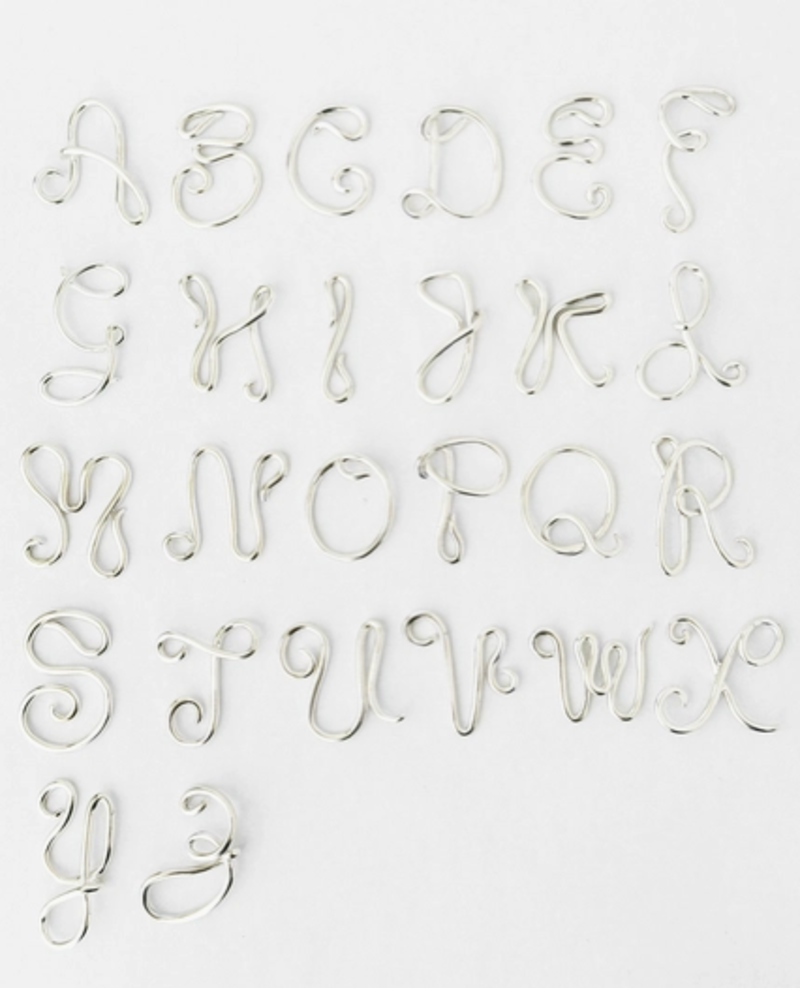 A B C D E F
G H I J K L
M N O P Q R
S T U V W X
Y Z